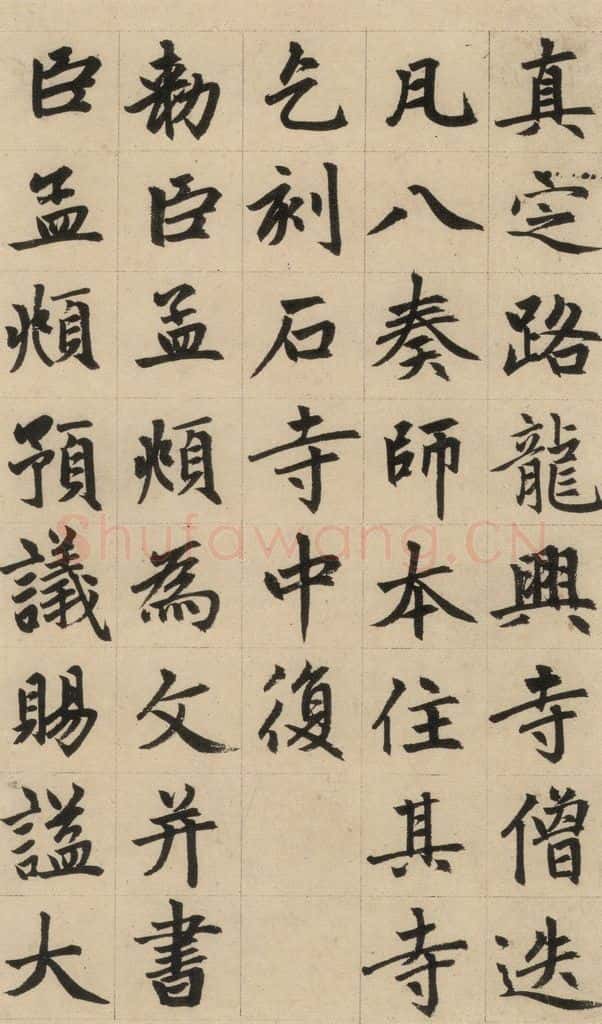 真定路龍興寺僧迭
凡八奏師本住其寺
乞刻石寺中復
勅臣孟頫為文并書
臣孟頫預議賜謚大
Shufawang.CN